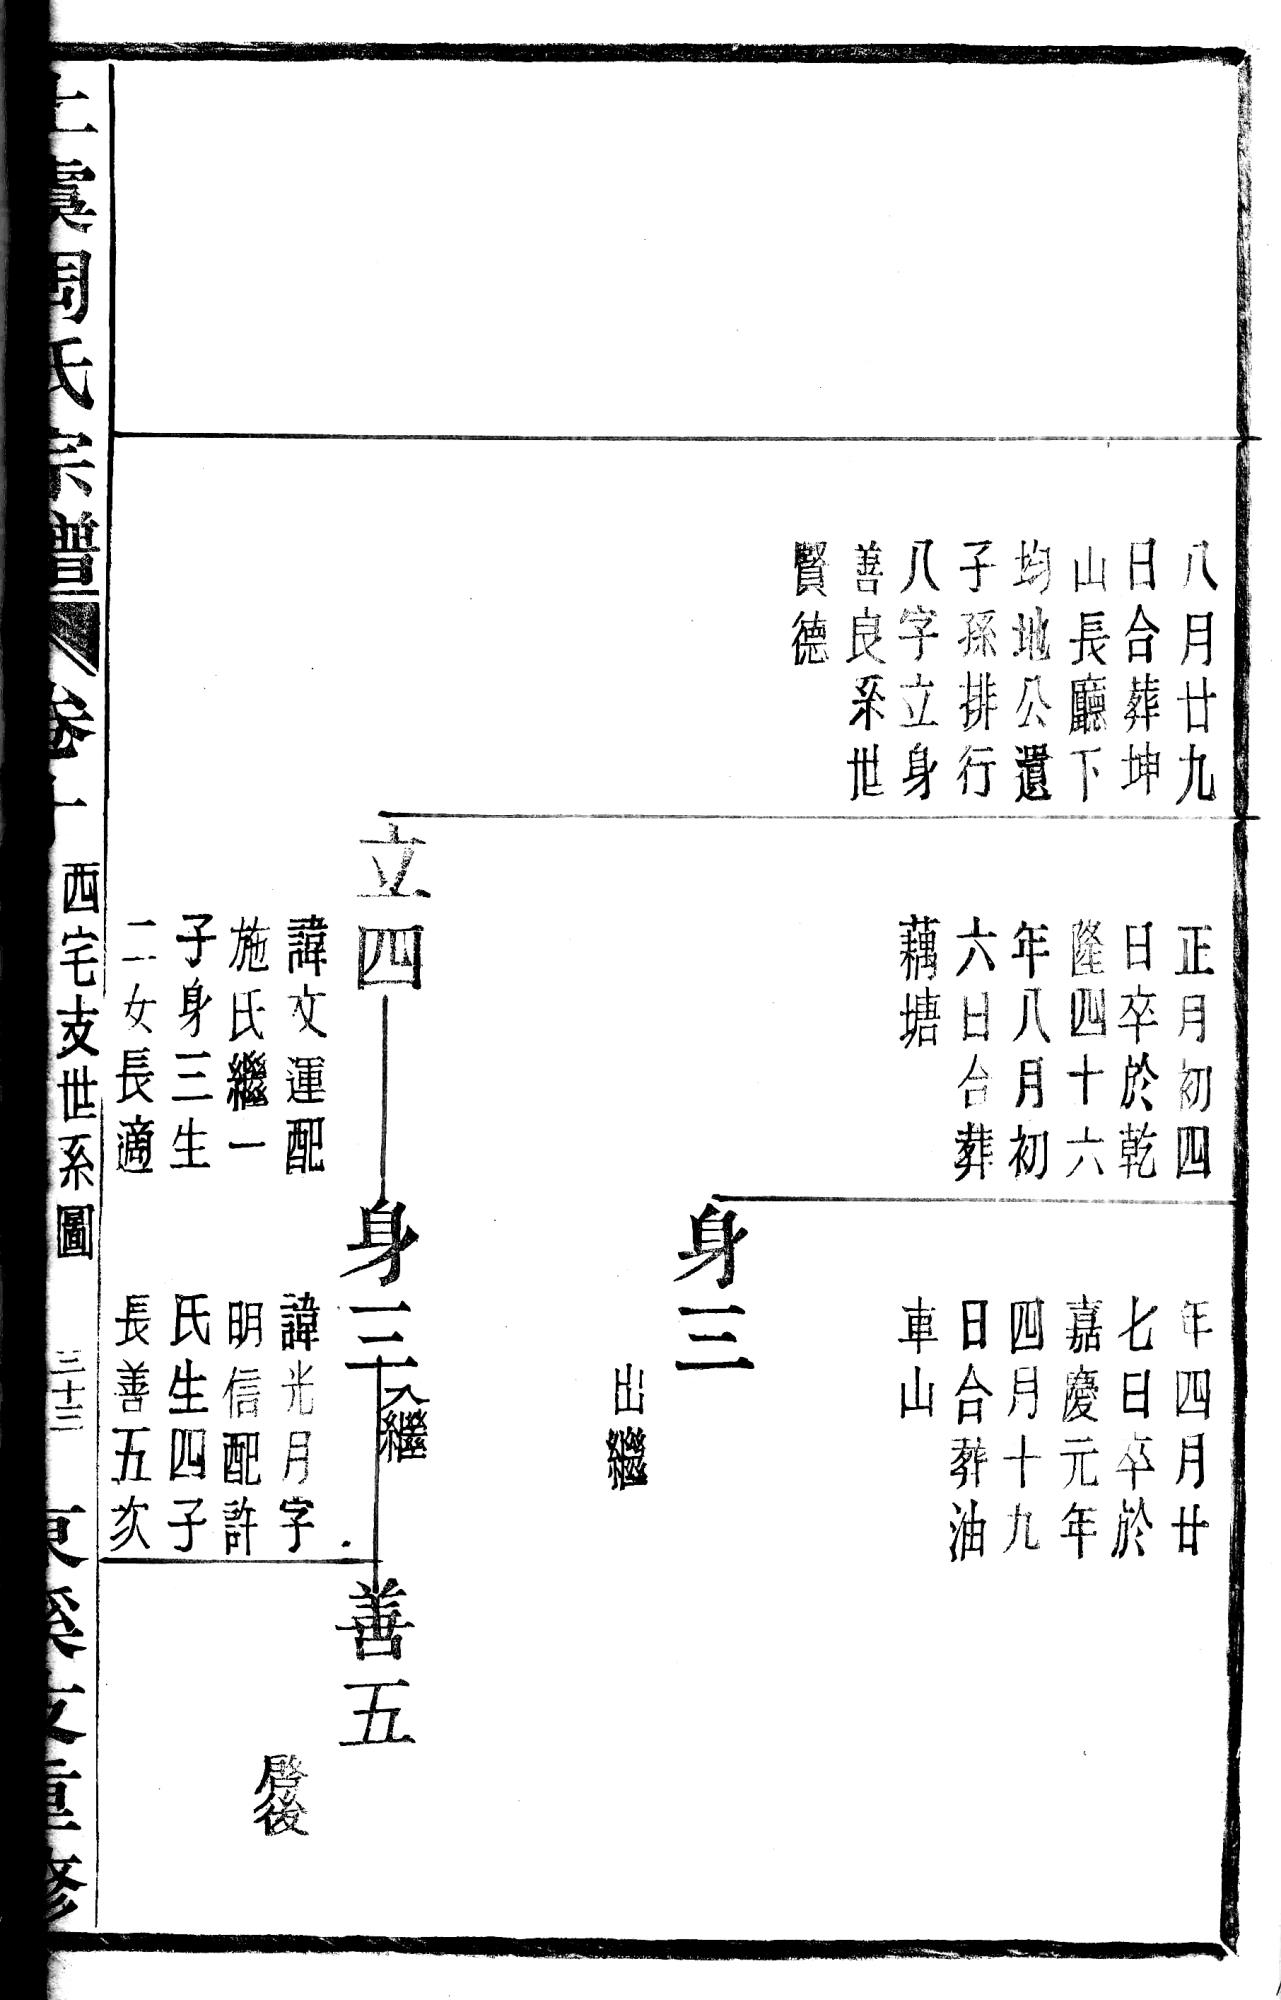 八月廿九
日合葬坤
山長廳下
均地公遺
子孫排行
八字立身
善良系世
賢德
正月初四
日卒於乾
隆四十六
年八月初
六日合葬
藕塘
立四
諱文運配
施氏繼一
子身三生
二女長適
年四月廿
七日卒於
嘉慶元年
四月十九
日合葬油
車山
身三
出繼
身三
入繼
諱光月字
明信配許
氏生四子
長善五次
善五
啓後
上虞周氏宗譜
卷十
西宅支世系圖
三十三
東溪支重修